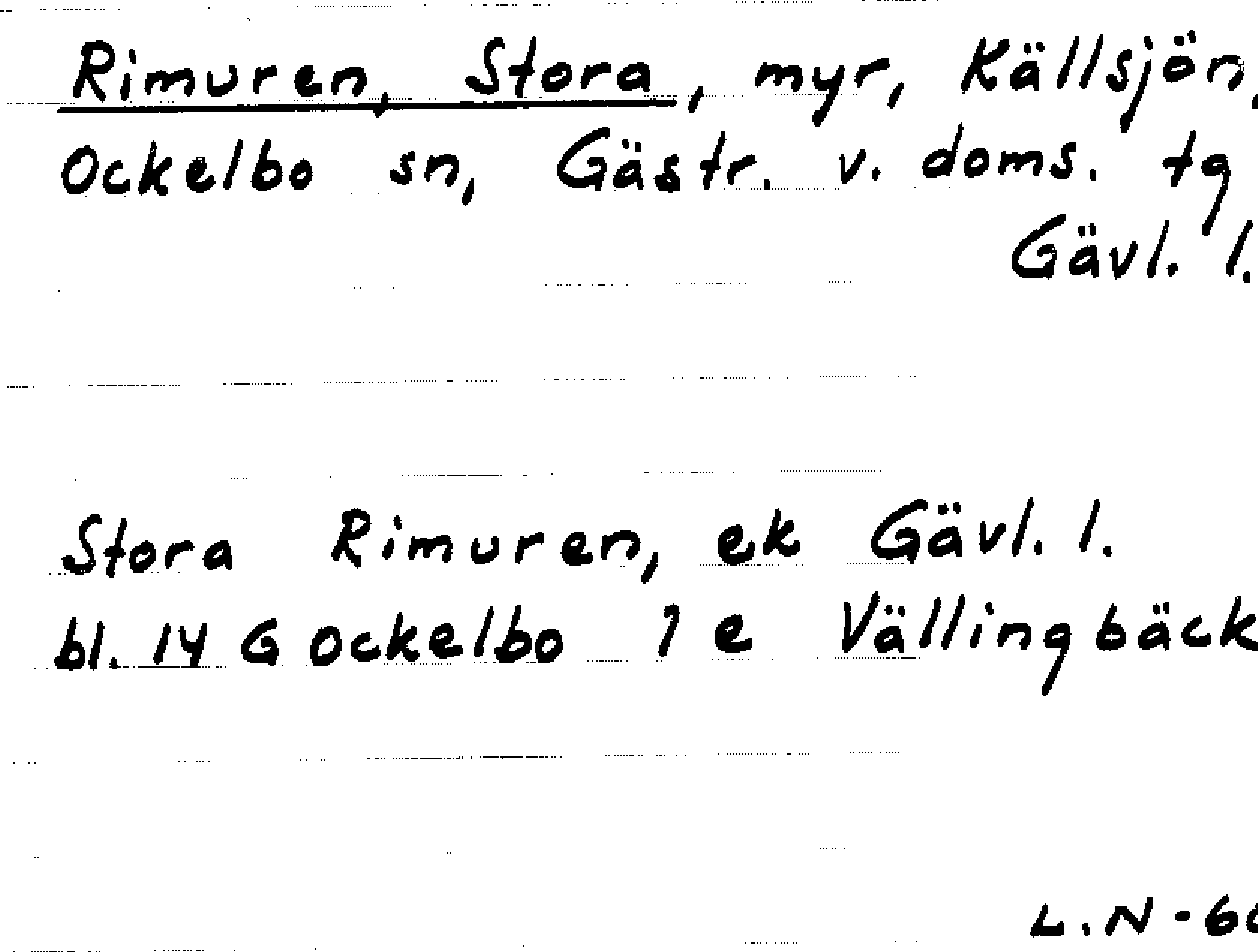 Rimuren, Stora, myr, Källsjön,
Ockelbo sn, Gästr. v. doms. tg
Gävl. l.
Stora Rimuren, ek Gävl. l.
bl. 14 G Ockelbo 1 e Vällingbäck
L.N-60